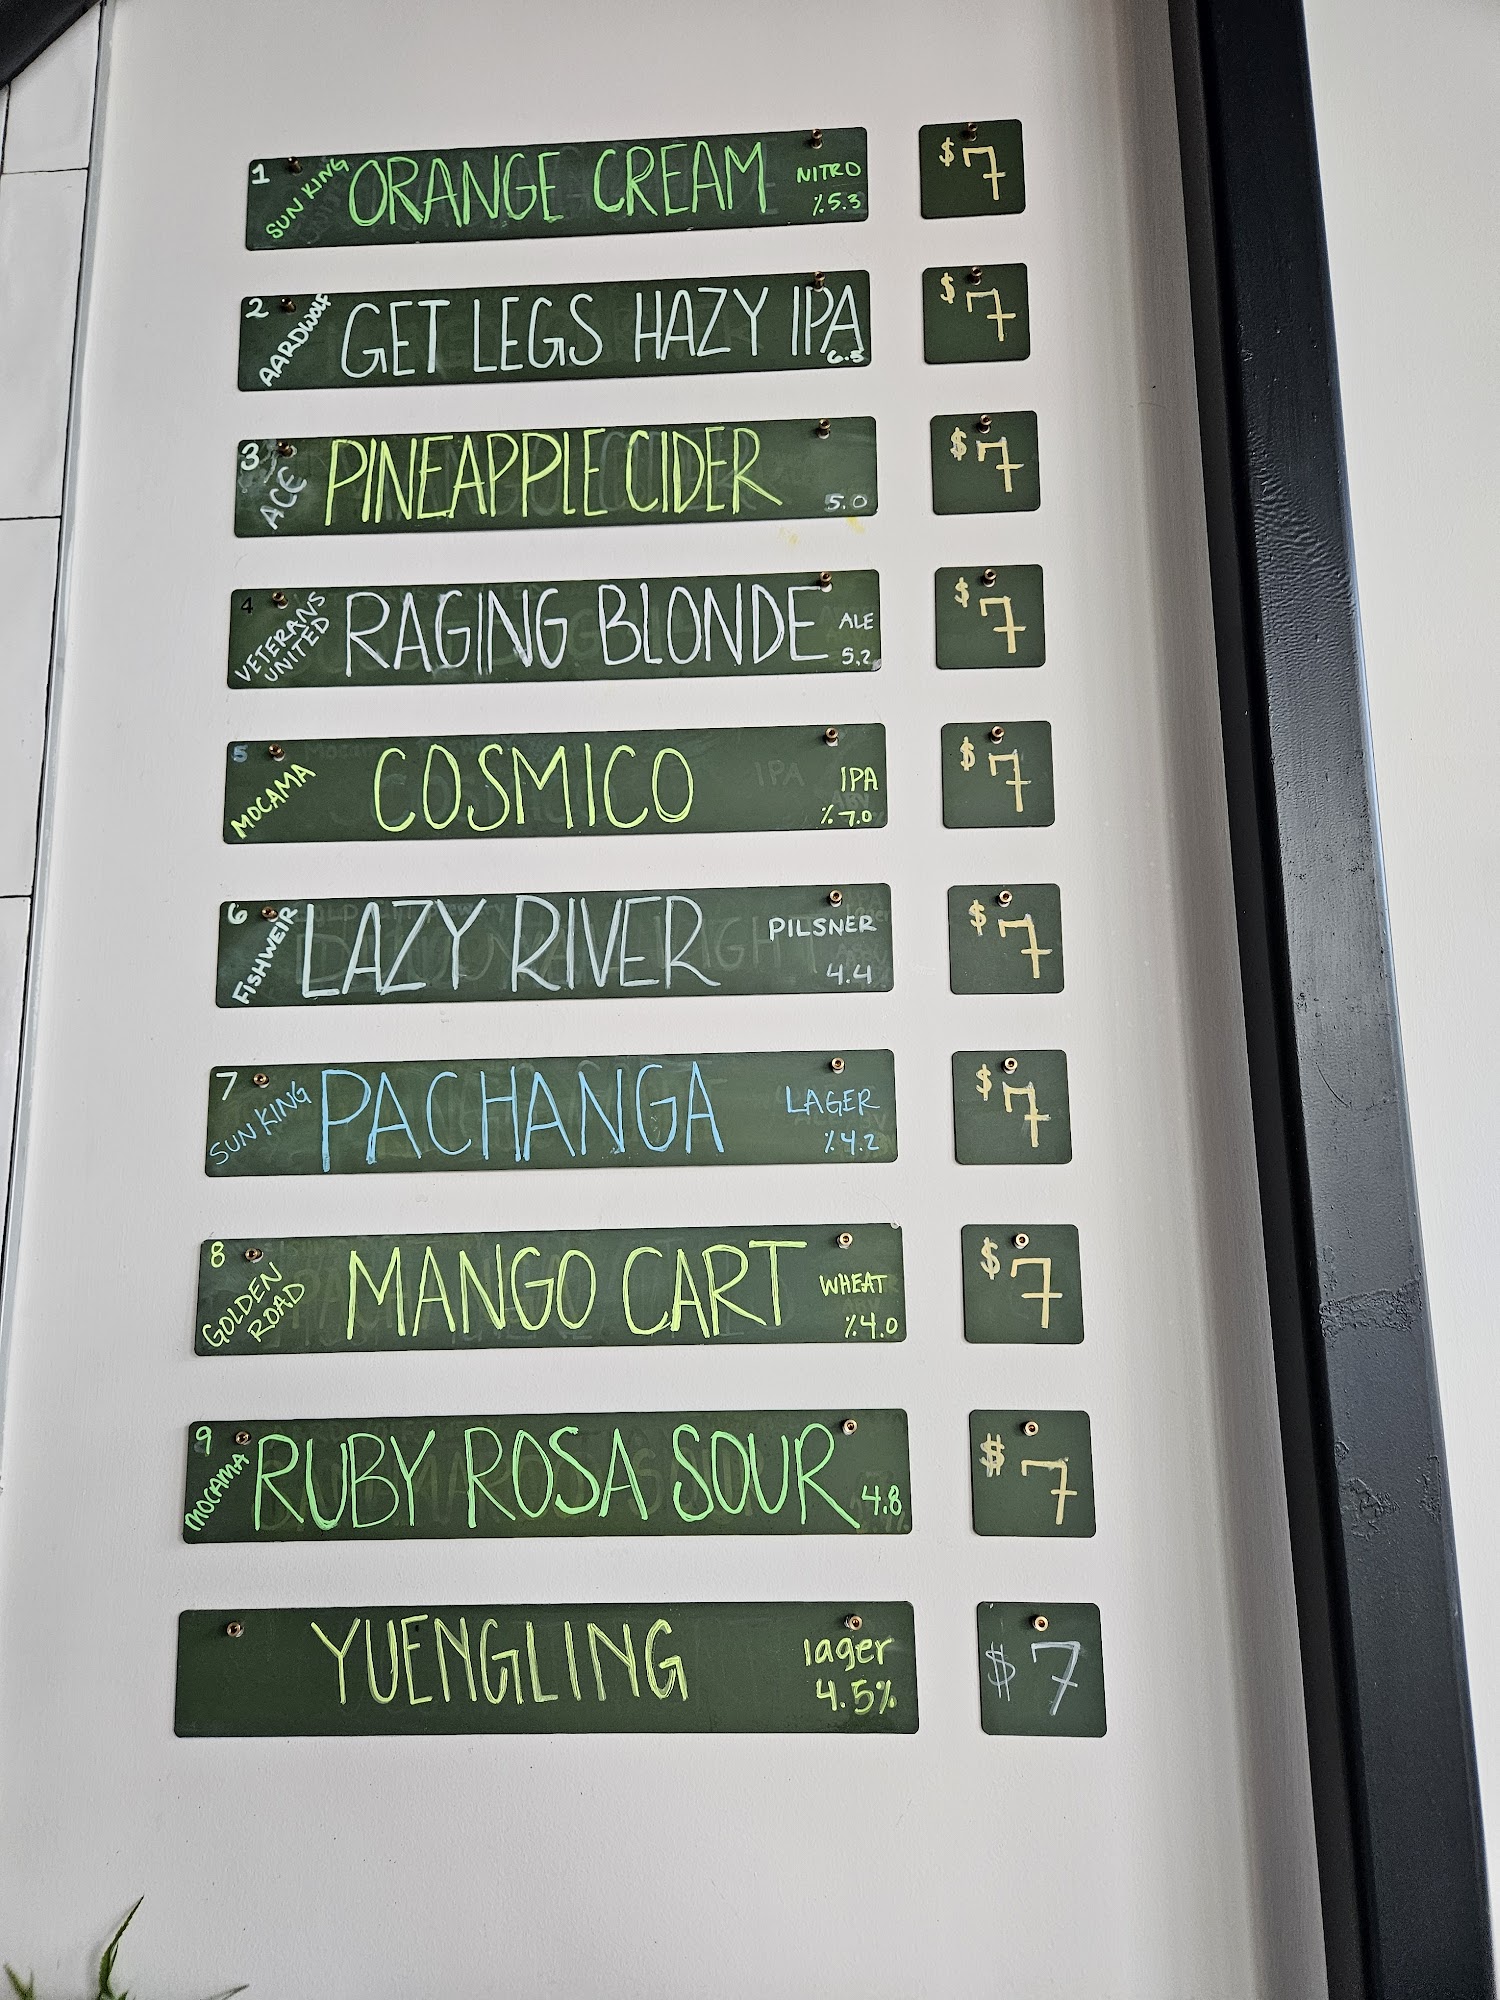 1 SUN KING ORANGE CREAM NITRO %5.3 $7
2 AARDWOLF GET LEGS HAZY IPA 6.5 $7
3 ACE PINEAPPLE CIDER 5.0 $7
4 VETERANS UNITED RAGING BLONDE ALE 5.2 $7
5 MOCAMA COSMICO IPA %7.0 $7
6 FISHWEIR LAZY RIVER PILSNER 4.4 $7
7 SUN KING PACHANGA LAGER %4.2 $7
8 GOLDEN ROAD MANGO CART WHEAT %4.0 $7
9 MOCAMA RUBY ROSA SOUR 4.8 $7
YUENGLING lager 4.5% $7